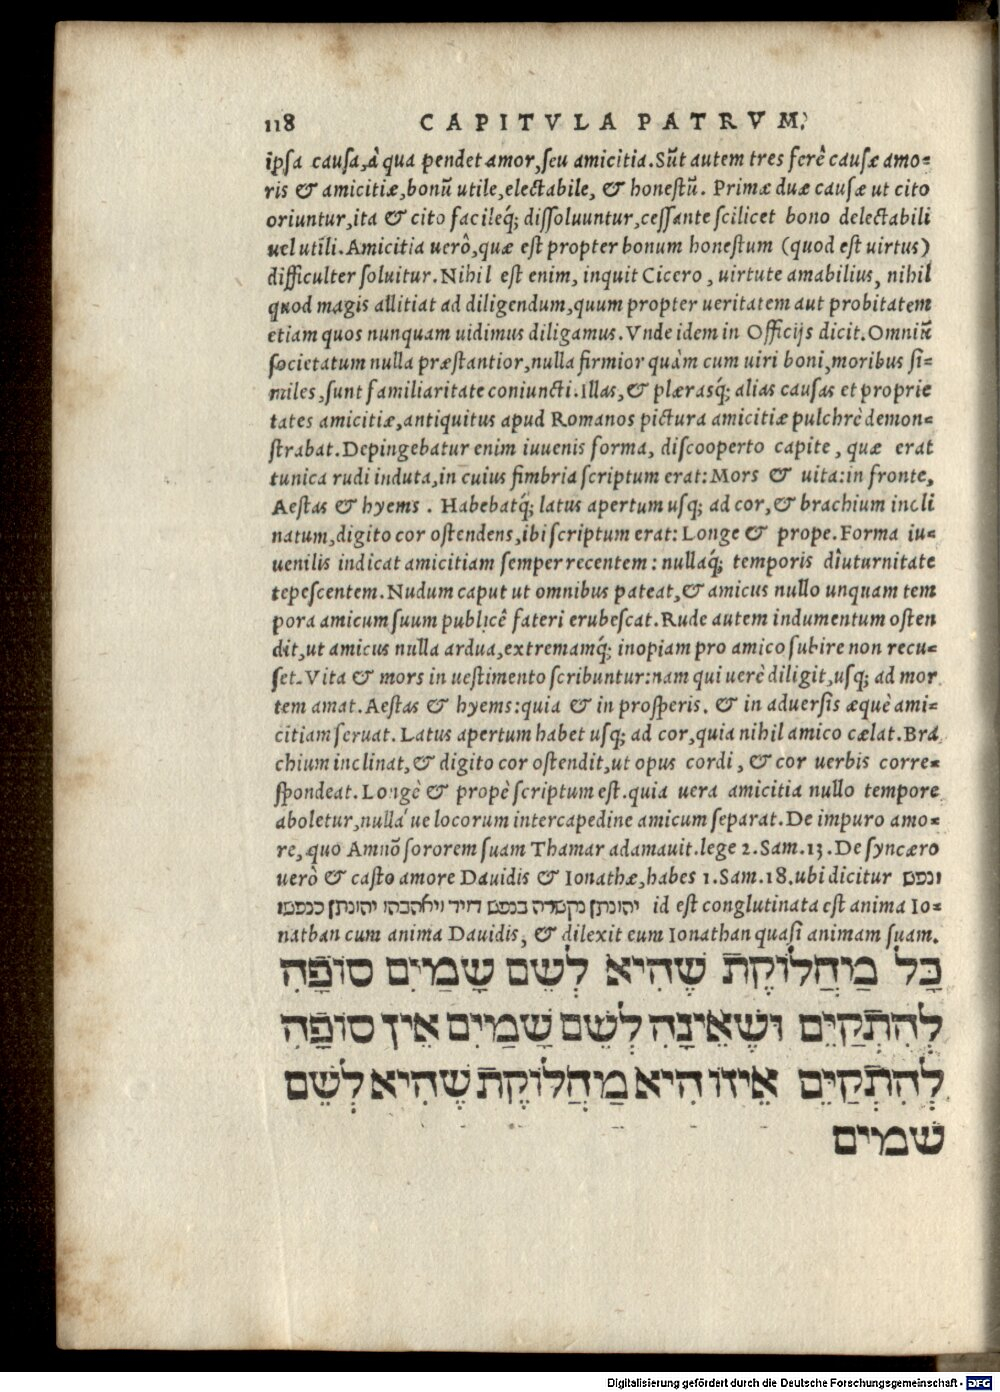 118 CAPITVLA PATRVM.
ipsa causa, à qua pendet amor, seu amicitia. Sūt autem tres ferè causæ amo=
ris & amicitiæ, bonū utile, electabile, & honestū. Primæ duæ causæ ut cito
oriuntur, ita & cito facileq́; dissoluuntur, cessante scilicet bono delectabili
uel utili. Amicitia uerò, quæ est propter bonum honestum (quod est uirtus)
difficulter soluitur. Nihil est enim, inquit Cicero, uirtute amabilius, nihil
quod magis allitiat ad diligendum, quum propter ueritatem aut probitatem
etiam quos nunquam uidimus diligamus. Vnde idem in Officijs dicit. Omniū
societatum nulla præstantior, nulla firmior quàm cum uiri boni, moribus si=
miles, sunt familiaritate coniuncti. Illas, & plærasq́; alias causas et proprie
tates amicitiæ, antiquitus apud Romanos pictura amicitiæ pulchrè demon=
strabat. Depingebatur enim iuuenis forma, discooperto capite, quæ erat
tunica rudi induta, in cuius fimbria scriptum erat: Mors & uita: in fronte,
Aestas & hyems. Habebatq́; latus apertum usq; ad cor, & brachium incli
natum, digito cor ostendens, ibi scriptum erat: Longe & prope. Forma iu=
uenilis indicat amicitiam semper recentem: nullaq́; temporis diuturnitate
tepescentem. Nudum caput ut omnibus pateat, & amicus nullo unquam tem
pora amicum suum publicê fateri erubescat. Rude autem indumentum osten
dit, ut amicus nulla ardua, extremamq́; inopiam pro amico subire non recu=
set. Vita & mors in uestimento scribuntur: nam qui uerè diligit, usq; ad mor
tem amat. Aestas & hyems: quia & in prosperis. & in aduersis æquè ami=
citiam seruat. Latus apertum habet usq; ad cor, quia nihil amico cælat. Bra
chium inclinat, & digito cor ostendit, ut opus cordi, & cor uerbis corre=
spondeat. Longè & propè scriptum est. quia uera amicitia nullo tempore
aboletur, nulla ue locorum intercapedine amicum separat. De impuro amo=
re, quo Amnō sororem suam Thamar adamauit. lege 2. Sam. 13. De syncæro
uerò & casto amore Dauidis & Ionathæ, habes 1. Sam. 18. ubi dicitur ונפש
יהונתן נקשרה בנפש דויד ויאהבהו יהונתן כנפשו id est conglutinata est anima Io=
nathan cum anima Dauidis, & dilexit eum Ionathan quasi animam suam.
כָּל מַחֲלוֹקֶת שֶׁהִיא לְשֵׁם שָׁמַיִם סוֹפָהּ
לְהִתְקַיֵּם וּשֶׁאֵינָהּ לְשֵׁם שָׁמַיִם אֵין סוֹפָהּ
לְהִתְקַיֵּם אֵיזוֹ הִיא מַחֲלוֹקֶת שֶׁהִיא לְשֵׁם
שמים
Digitalisierung gefördert durch die Deutsche Forschungsgemeinschaft - DFG